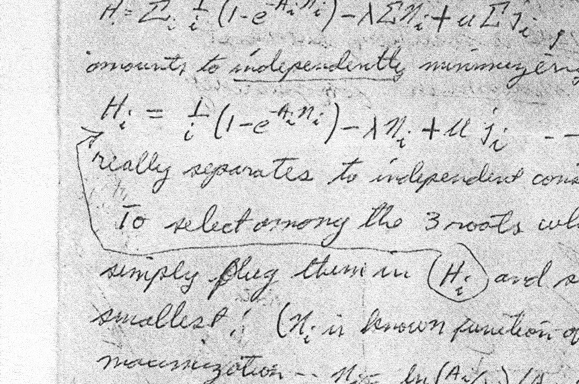 H = Σ_i 1/i (1-e^{-A_i n_i}) - λ Σ n_i + u Σ j_i
amounts to independently minimizing
H_i = 1/i (1-e^{-A_i n_i}) - λ n_i + u j_i --
really separates to independent
To select among the 3 roots
simply plug them in H_i and
smallest! (n_i is known function of
maximization -- n_i = ln(A_i